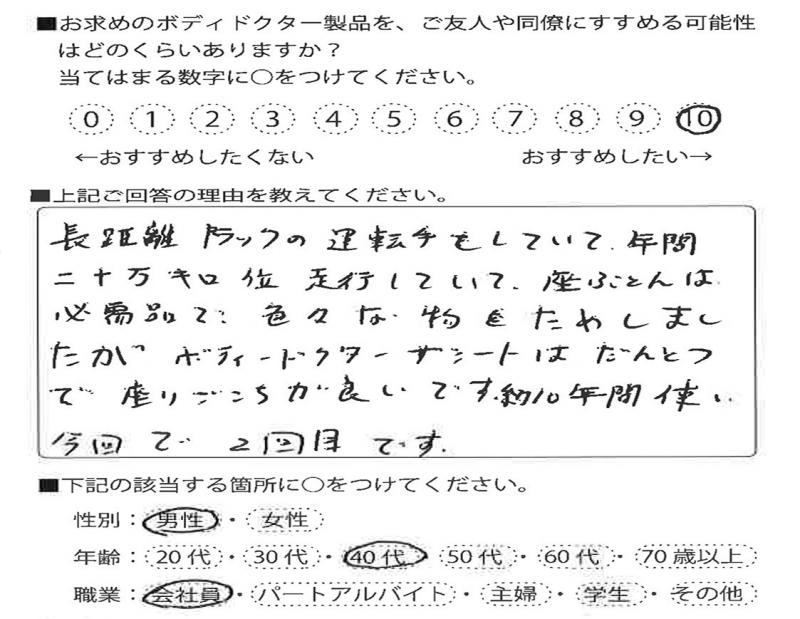 ■お求めのボディドクター製品を、ご友人や同僚にすすめる可能性
はどのくらいありますか？
当てはまる数字に○をつけてください。
0 1 2 3 4 5 6 7 8 9 10
←おすすめしたくない おすすめしたい→
■上記ご回答の理由を教えてください。
長距離トラックの運転手をしていて、年間
二十万キロ位走行していて、座ぶとんは
必需品で、色々な物をためしまし
たがボディードクターザシートはだんとつ
で座りごこちが良いです。約10年間使い
今回で2回目です。
■下記の該当する箇所に○をつけてください。
性別：男性・女性
年齢：20代・30代・40代・50代・60代・70歳以上
職業：会社員・パートアルバイト・主婦・学生・その他